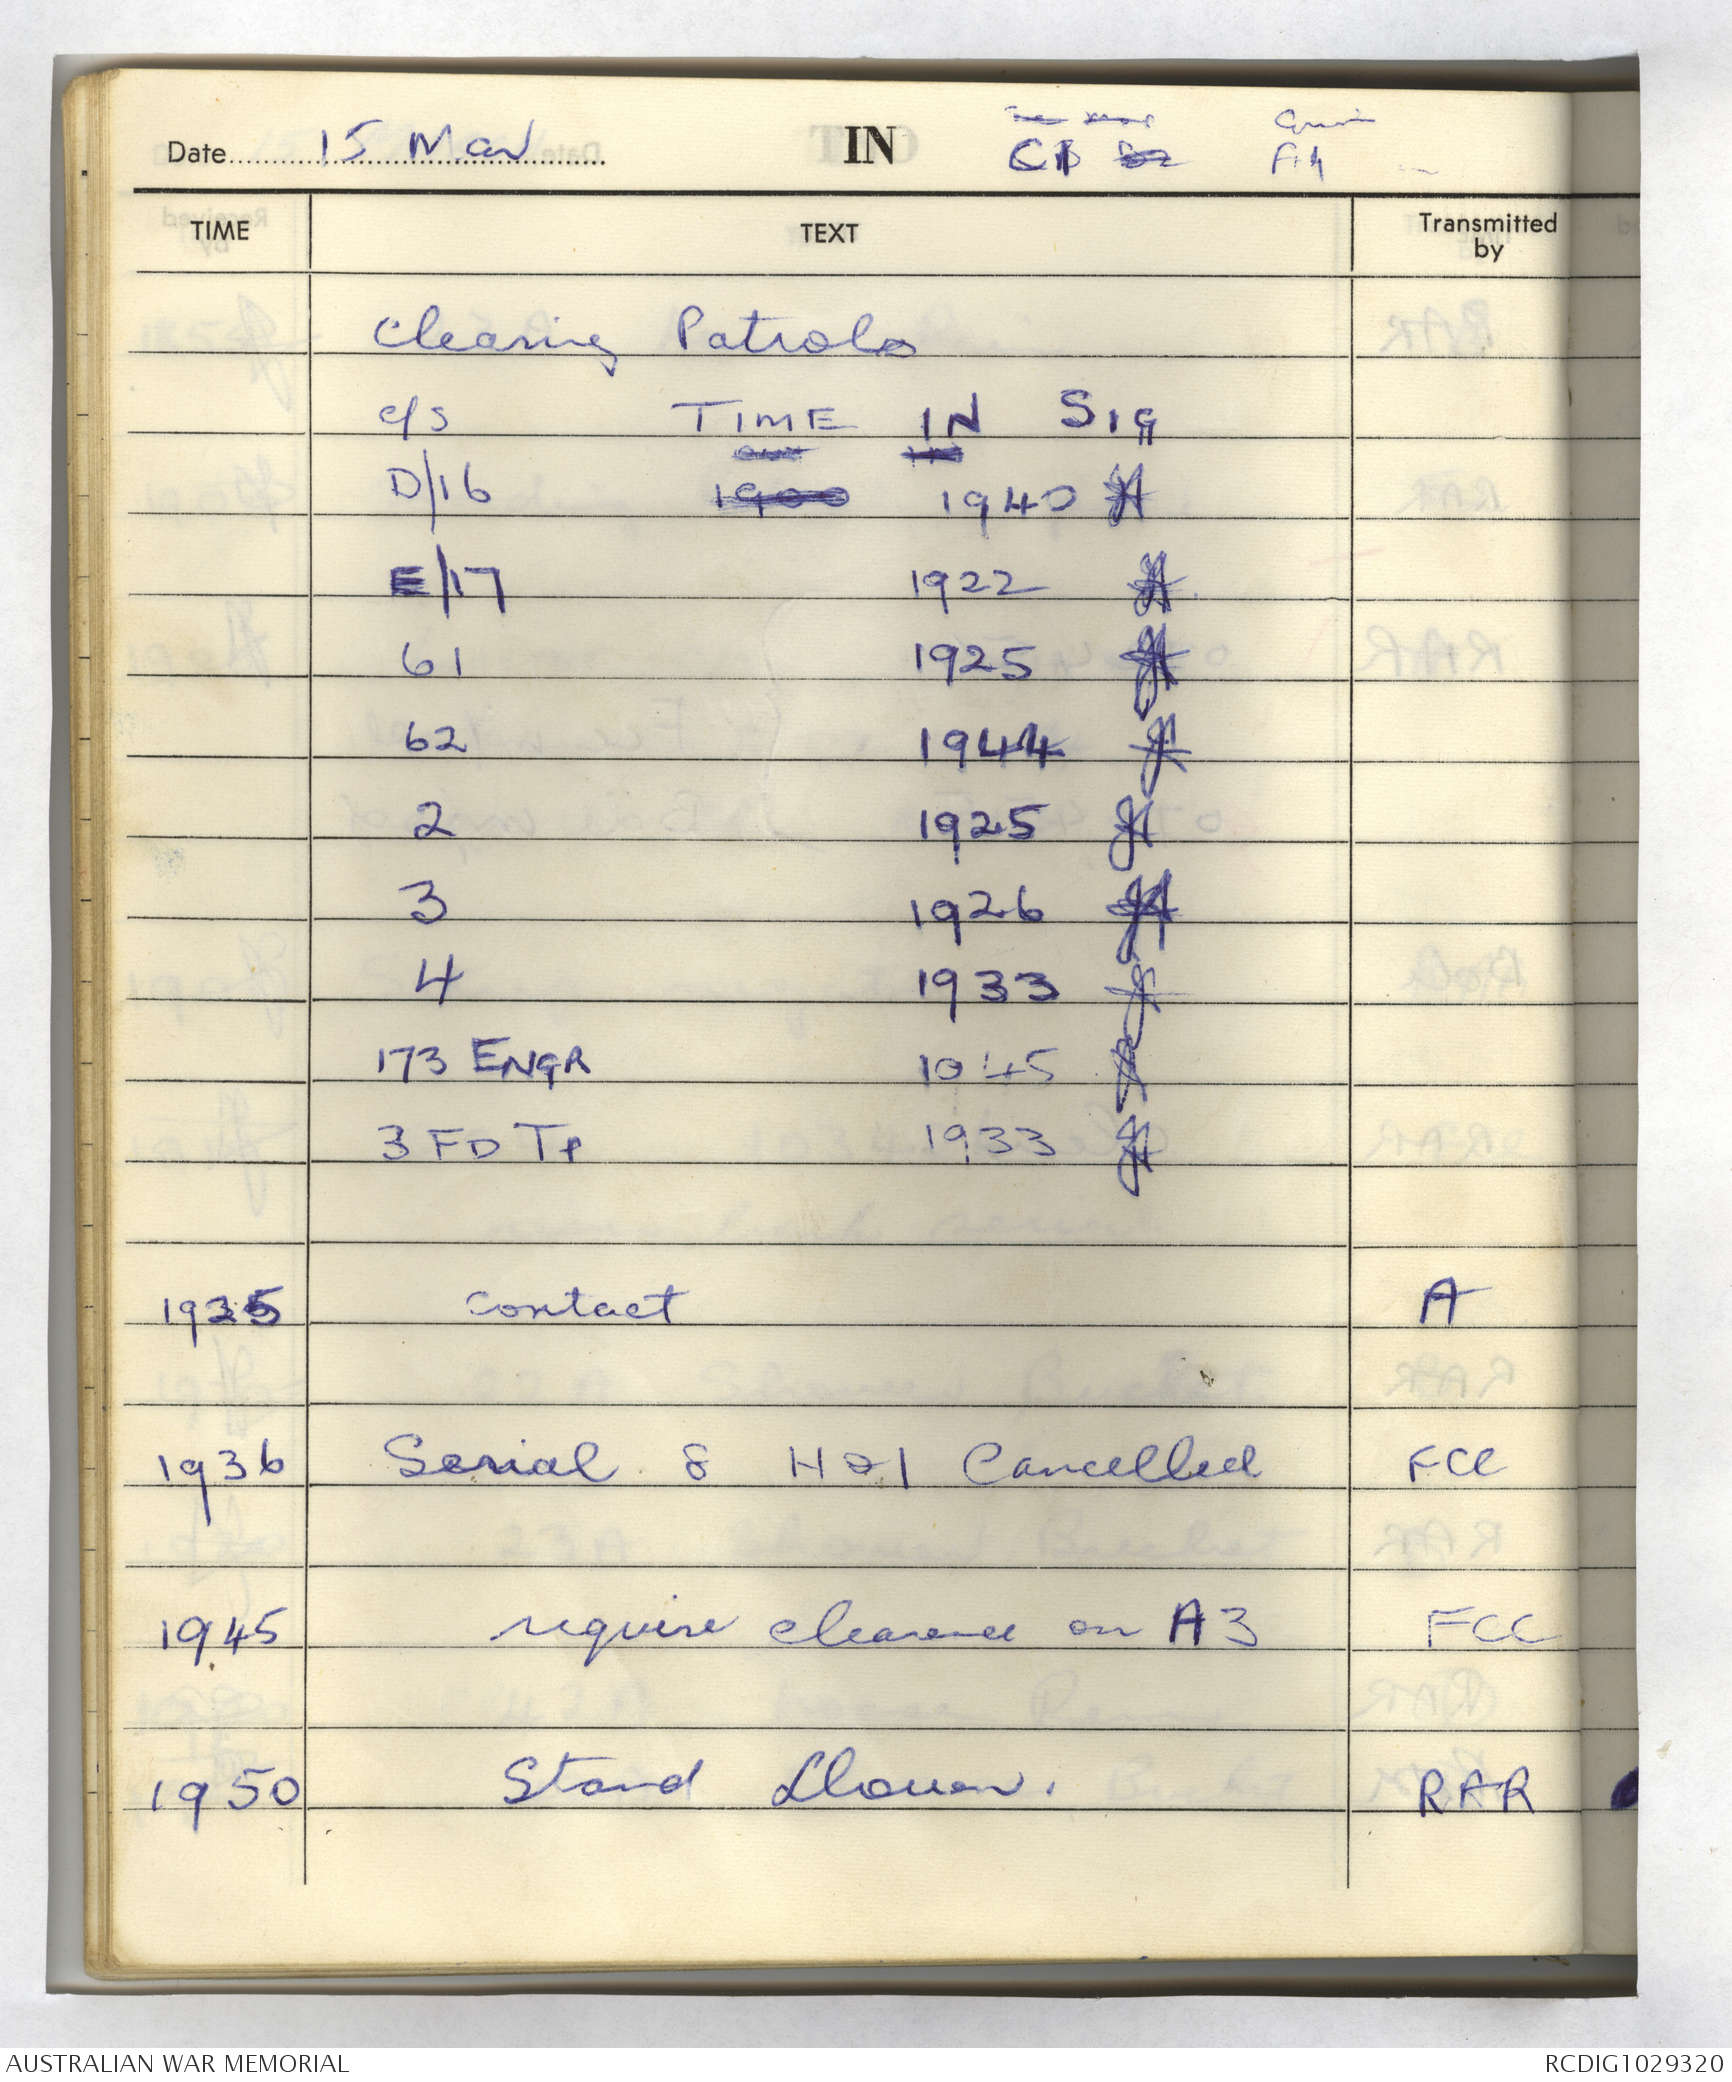 Date 15 Mar IN
TIME TEXT Transmitted by
Clearing Patrols
c/s TIME IN Sig
D/16 1900 1940
E/17 1922
61 1925
62 1944
2 1925
3 1926
4 1933
173 ENGR 1045
3 FD Tp 1933
1925 contact A
1936 Serial 8 H21 Cancelled FCC
1945 require clearence on A3 FCC
1950 Stand Down. RAR
AUSTRALIAN WAR MEMORIAL RCDIG1029320